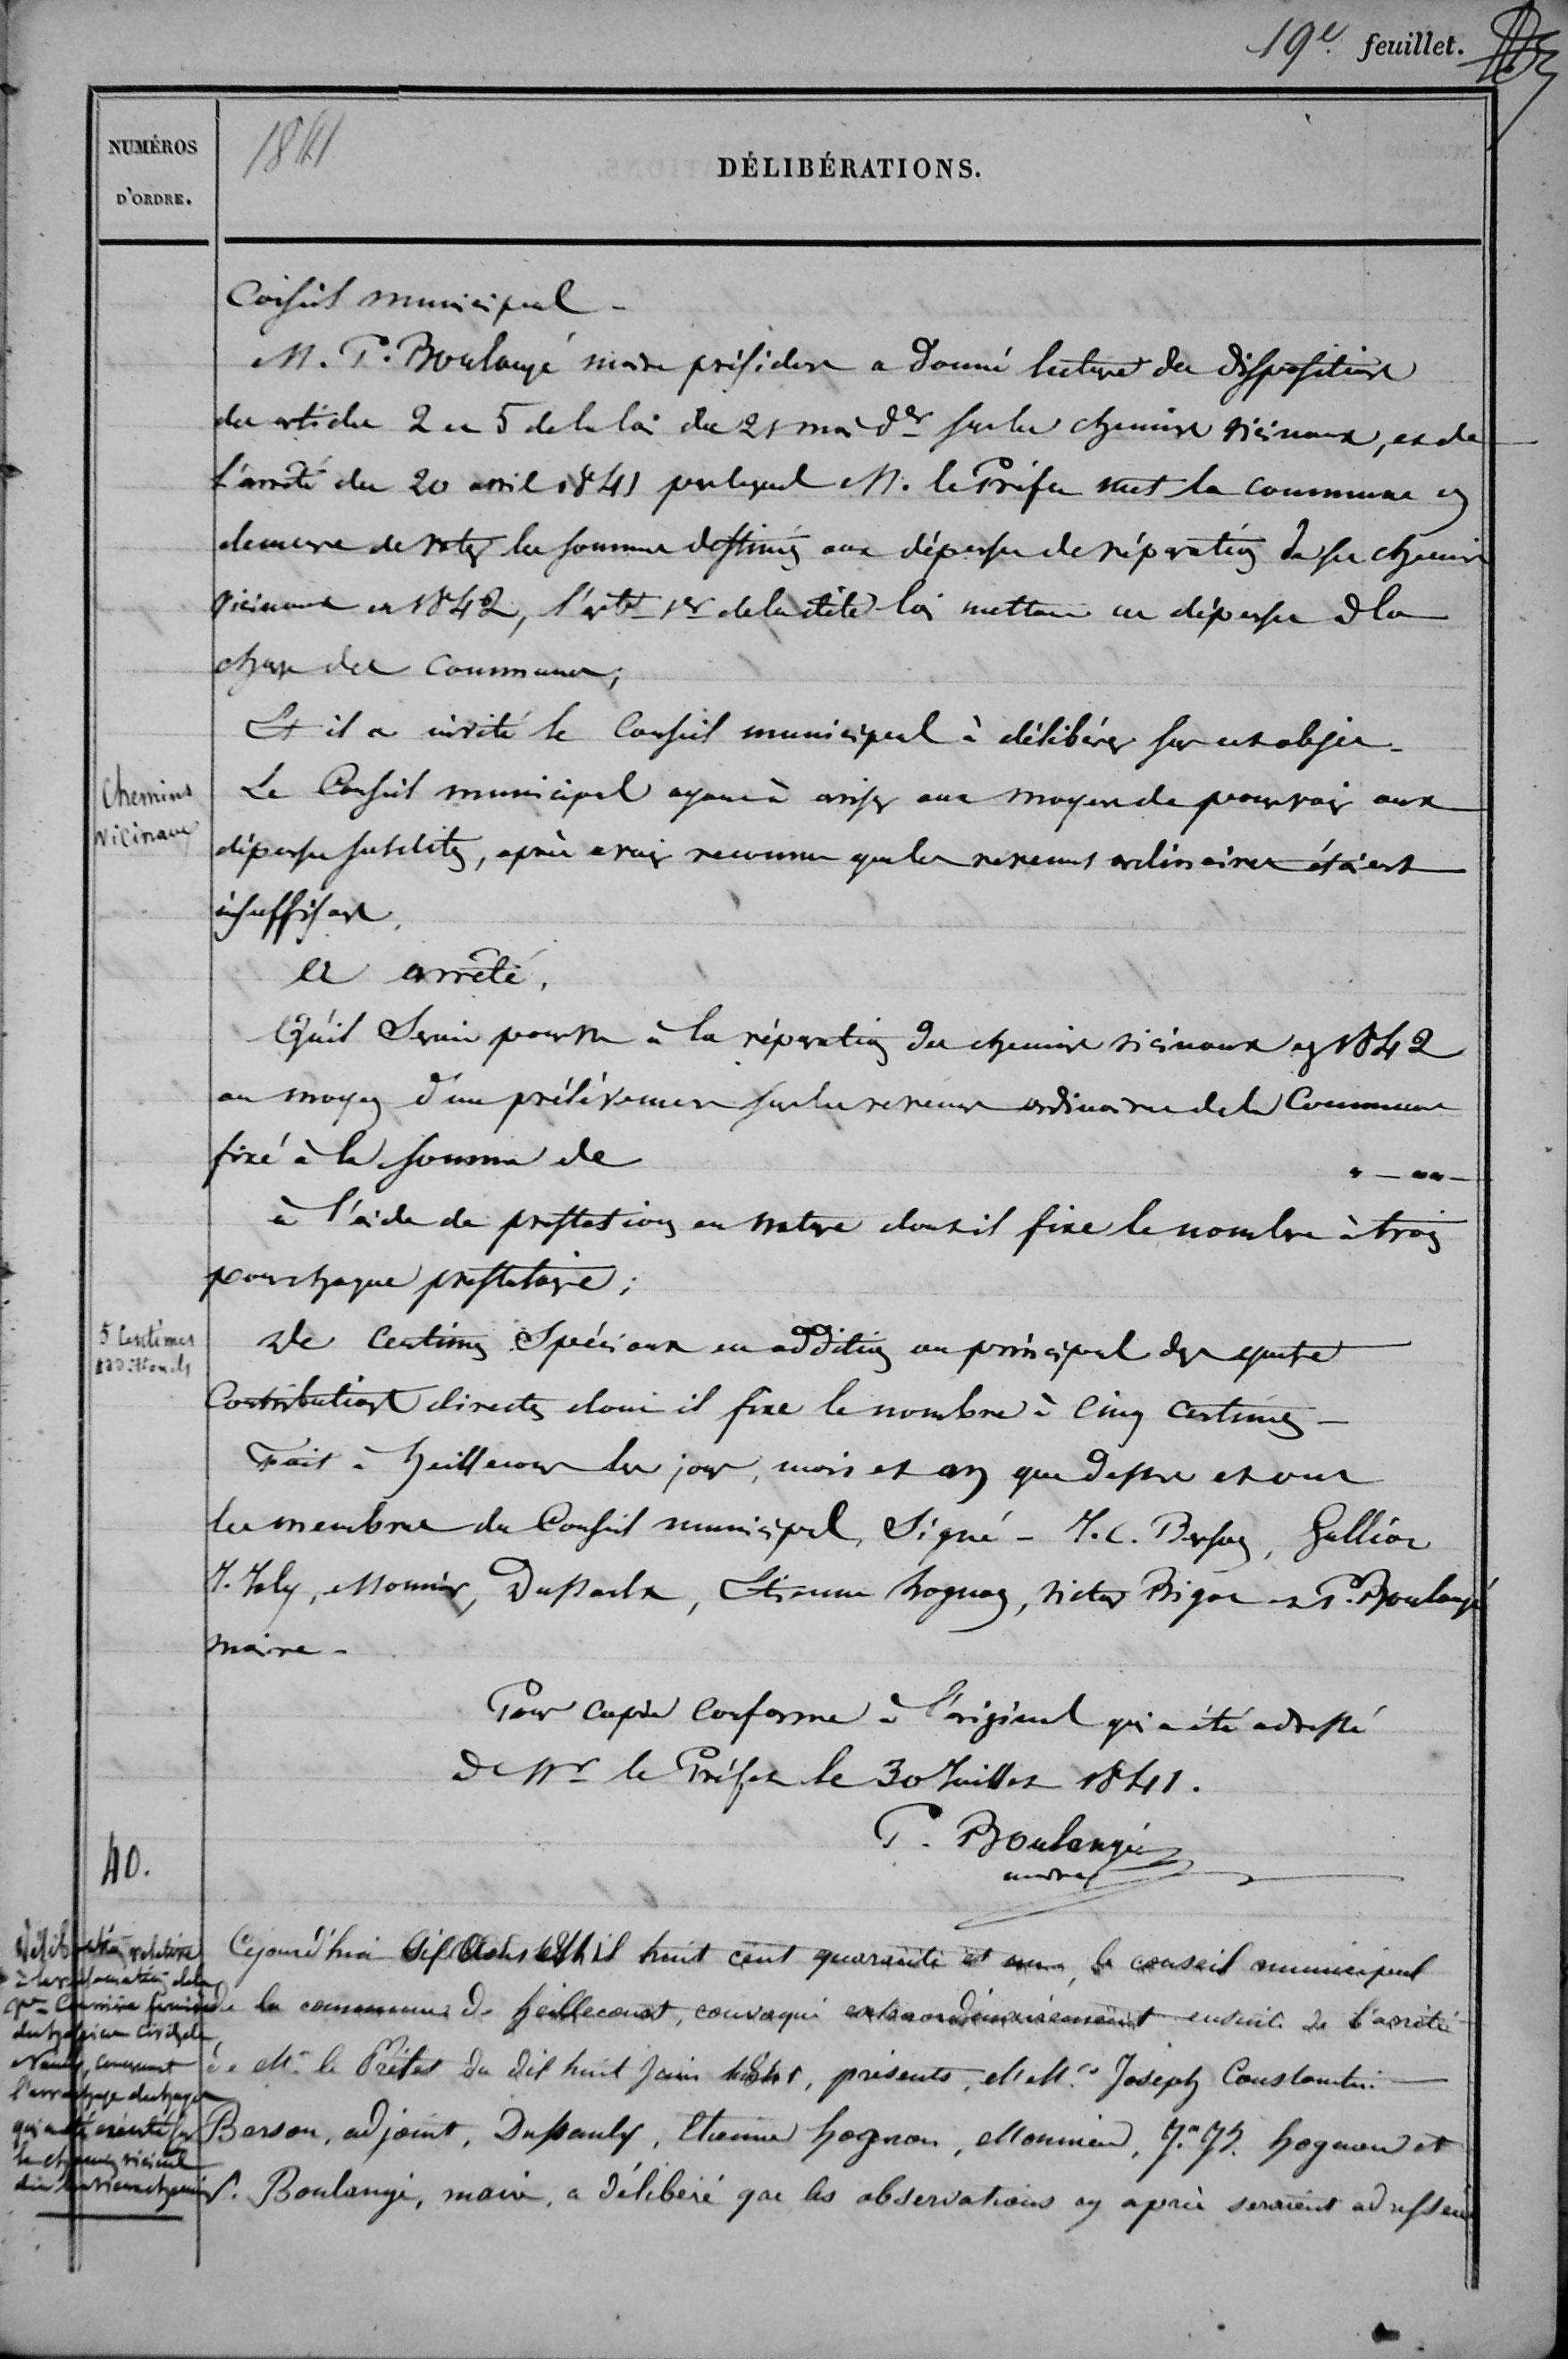 19e. feuillet.
NUMÉROS
D'ORDRE.
1841
DÉLIBÉRATIONS.
Conseil municipal -
M. P. Boulangé maire président a donné lecture des dispositions
des articles 2 et 5 de la loi du 21 mai der sur les chemins vicinaux, et de
l'arrêté du 20 avril 1841 par lequel M. le Préfet met la commune en
demeure de voter les sommes destinées aux dépenses de réparation de ses chemins
vicinaux en 1842, l'art 1er de la dite loi mettant ces dépenses à la
charge des communes;
Et il a invité le Conseil municipal à délibérer sur cet objet.
Chemins
vicinaux
Le Conseil municipal ayant à aviser aux moyens de pourvoir aux
dépenses susdites, après avoir reconnu que les revenus ordinaires étaient
insuffisants,
a arrêté,
Qu'il serait pourvu à la réparation des chemins vicinaux en 1842
au moyen d'un prélèvement sur les revenus ordinaires de la Commune
fixé à la somme de " — "" —
à l'aide de prestations en nature dont il fixe le nombre à trois
pour chaque prestataire;
5 Centimes
additionels
De Centimes Spéciaux en addition au principal des quatre
Contributions directes dont il fixe le nombre à cinq centimes —
Fait à heillecourt les jour, mois et an que dessus et ont
les membres du Conseil municipal, Signé - J. C. Berson, Galliot
J. Joly, Monnier, Dussaulx, Etienne hognon, victor Bigot et P. Boulangé
maire -
Pour copie conforme à l'original qui a été adressé
à Mr le Préfet le 30 Juillet 1841.
P. Boulangé
maire
40.
Délibération relative
à la réclamation de la
Carrière
des hospices civils de
Nancy, concernant
l'arrachage des hayes
qui a été exécuté sur
le chemin vicinal
dit le vieux chemin
Cejourd'hui Août mil huit cent quarante et un, le conseil municipal
de la commune de heillecourt, convoqué extraordinairement ensuite de l'arrêté
de Mr. le Préfet du dix huit Juin 1841, présents, MM.rs Joseph Constantin
Berson, adjoint, Dussaulx, Etienne hognon, Monnier, Jn Jh. hognon et
P. Boulangé, maire, a délibéré que les observations cy après seraient adressées